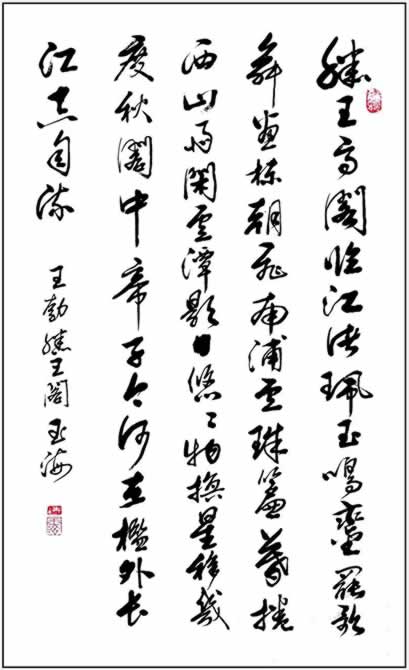 滕王高閣臨江渚珮玉鳴鸞罷歌
舞畫棟朝飛南浦雲珠簾暮捲
西山雨閑雲潭影日悠〻物換星移幾
度秋閣中帝子今何在檻外長
江空自流
王勃滕王閣玉海